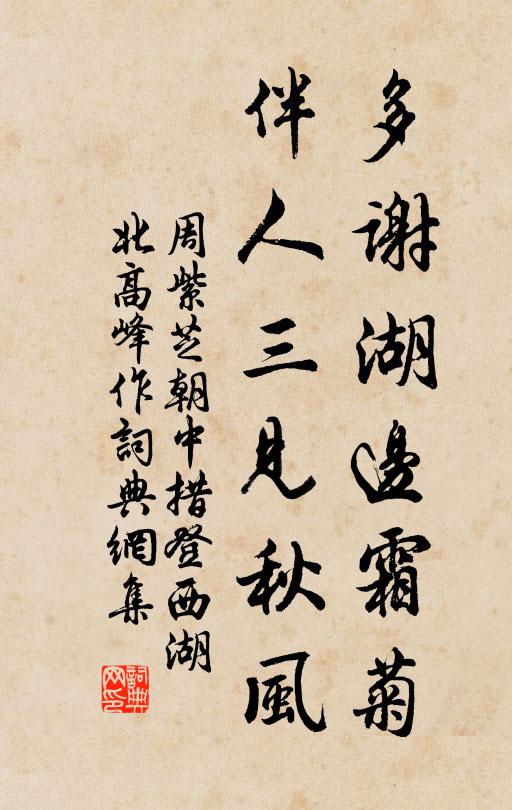 多謝湖邊霜菊
伴人三見秋風
周紫芝朝中措登西湖
北高峰作詞典網集
詞典
网印